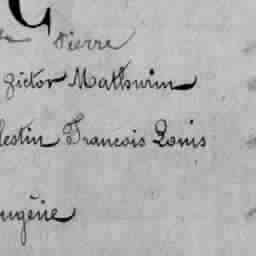 C
Pierre
Victor Mathurin
lestin Francois Louis
ugène